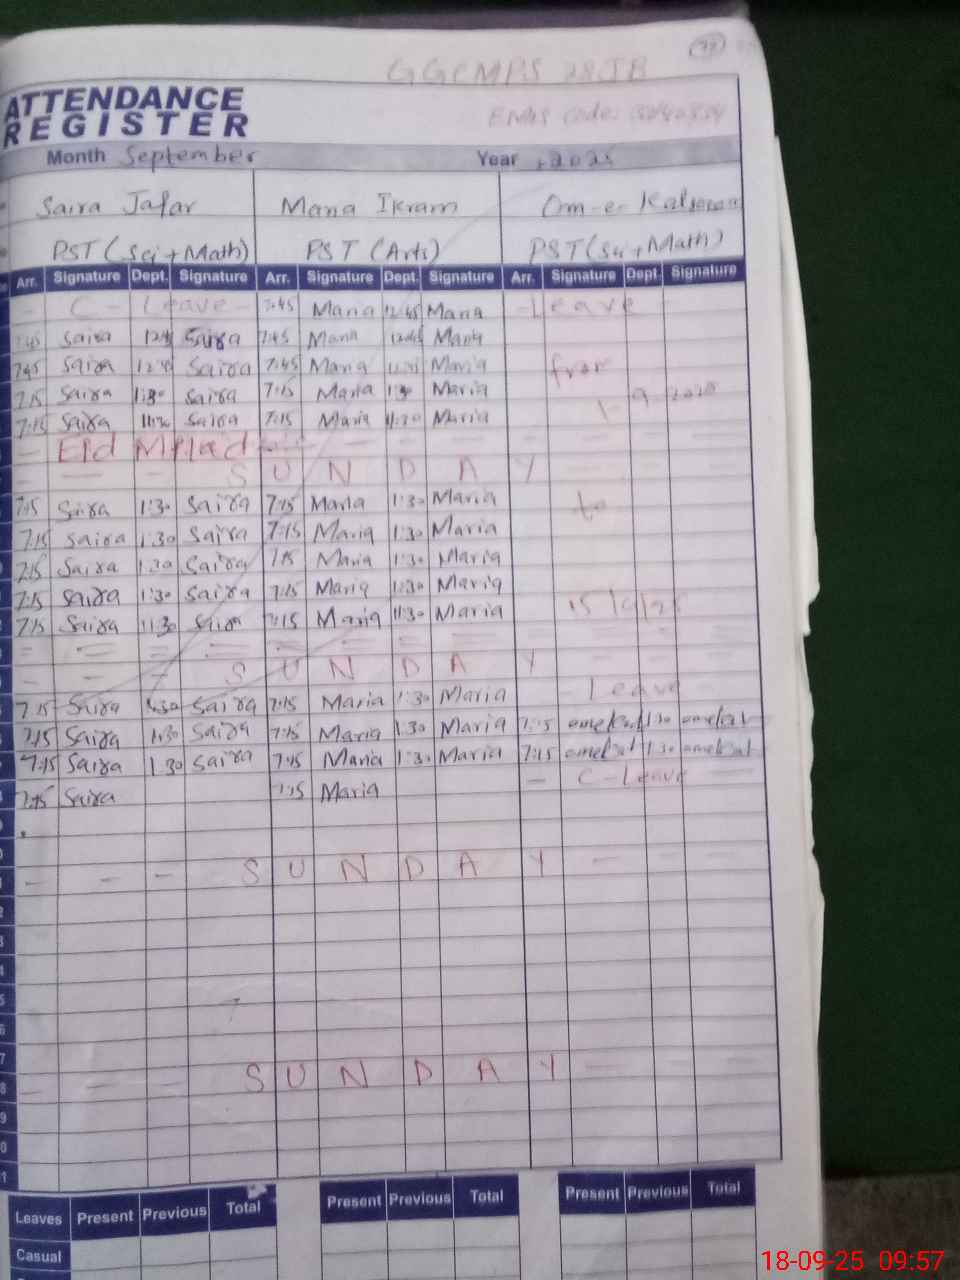 77
GGCMPS 28JB
ATTENDANCE
REGISTER
EMIS Code:
Month September Year 2025
Saira Jafar Maria Ikram Om-e-Kalsoom
PST (Sci + Math) PST (Arts) PST (Sci + Math)
Arr. Signature Dept. Signature Arr. Signature Dept. Signature Arr. Signature Dept. Signature
C - Leave - 7:45 Maria 12:45 Maria - Leave
7:45 Saira 12:45 Saira 7:45 Maria 12:45 Maria
7:45 Saira Saira 7:45 Maria Maria from
7:15 Saira 1:30 Saira 7:15 Maria 1:30 Maria
7:15 Saira 11:30 Saira 7:15 Maria 11:30 Maria
Eid Milad
- - - S U N D A Y
7:15 Saira 1:30 Saira 7:15 Maria 1:30 Maria to
7:15 Saira 1:30 Saira 7:15 Maria 1:30 Maria
7:15 Saira 1:30 Saira 7:15 Maria 1:30 Maria
7:15 Saira 1:30 Saira 7:15 Maria 1:30 Maria 15/9/25
7:15 Saira 11:30 Saira 7:15 Maria 11:30 Maria
- - - S U N D A Y - -
7:15 Saira 1:30 Saira 7:15 Maria 1:30 Maria Leave
7:15 Saira 1:30 Saira 7:15 Maria 1:30 Maria 7:15 1:30
7:15 Saira 1:30 Saira 7:15 Maria 1:30 Maria 7:15 1:30
7:15 Saira 7:15 Maria - C - Leave -
- - - S U N D A Y -
- - - S U N D A Y -
Leaves Present Previous Total Present Previous Total Present Previous Total
Casual
18-09-25 09:57